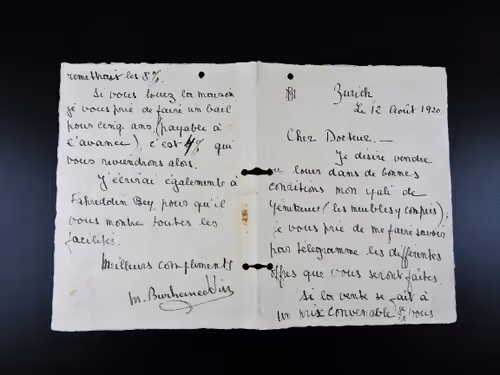 Zurich
Le 12 Août 1920
Cher Docteur. —
Je désire vendre
ou louer dans de bonnes
conditions mon yali de
Yénikeuy (les meubles y compris);
je vous prie de me faire savoir
par télégramme les differentes
offres que vous seront faites.
Si la vente se fait à
un prix convenable je vous
remettrais les 8%.
Si vous louez la maison
je vous prie de faire un bail
pour cinq ans (payable à
l'avance), c'est 4% qui
vous reviendrons alors.
J'écrirai également à
Fahreddin Bey pour qu'il
vous montre toutes les
facilité.
Meilleurs compliments
M. Burhaneddin